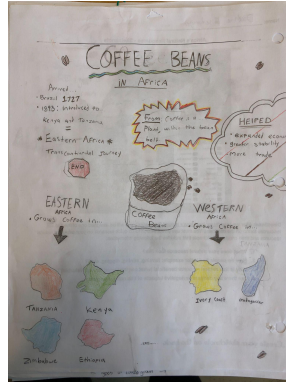 COFFEE BEANS
IN AFRICA
Period
• Brazil 1727
• 1893: introduced to
Kenya and Tanzania
=
Eastern Africa
Transcontinental Journey
END
From Coffee is a
Plant, within the bean
HELPED
• Expanded econ
• greater stability
• More trade
Coffee
Beans
EASTERN
AFRICA
• Grows Coffee in...
WESTERN
AFRICA
• Grows Coffee in...
Tanzania
Kenya
Ivory Coast
Madagascar
Zimbabwe
Ethiopia